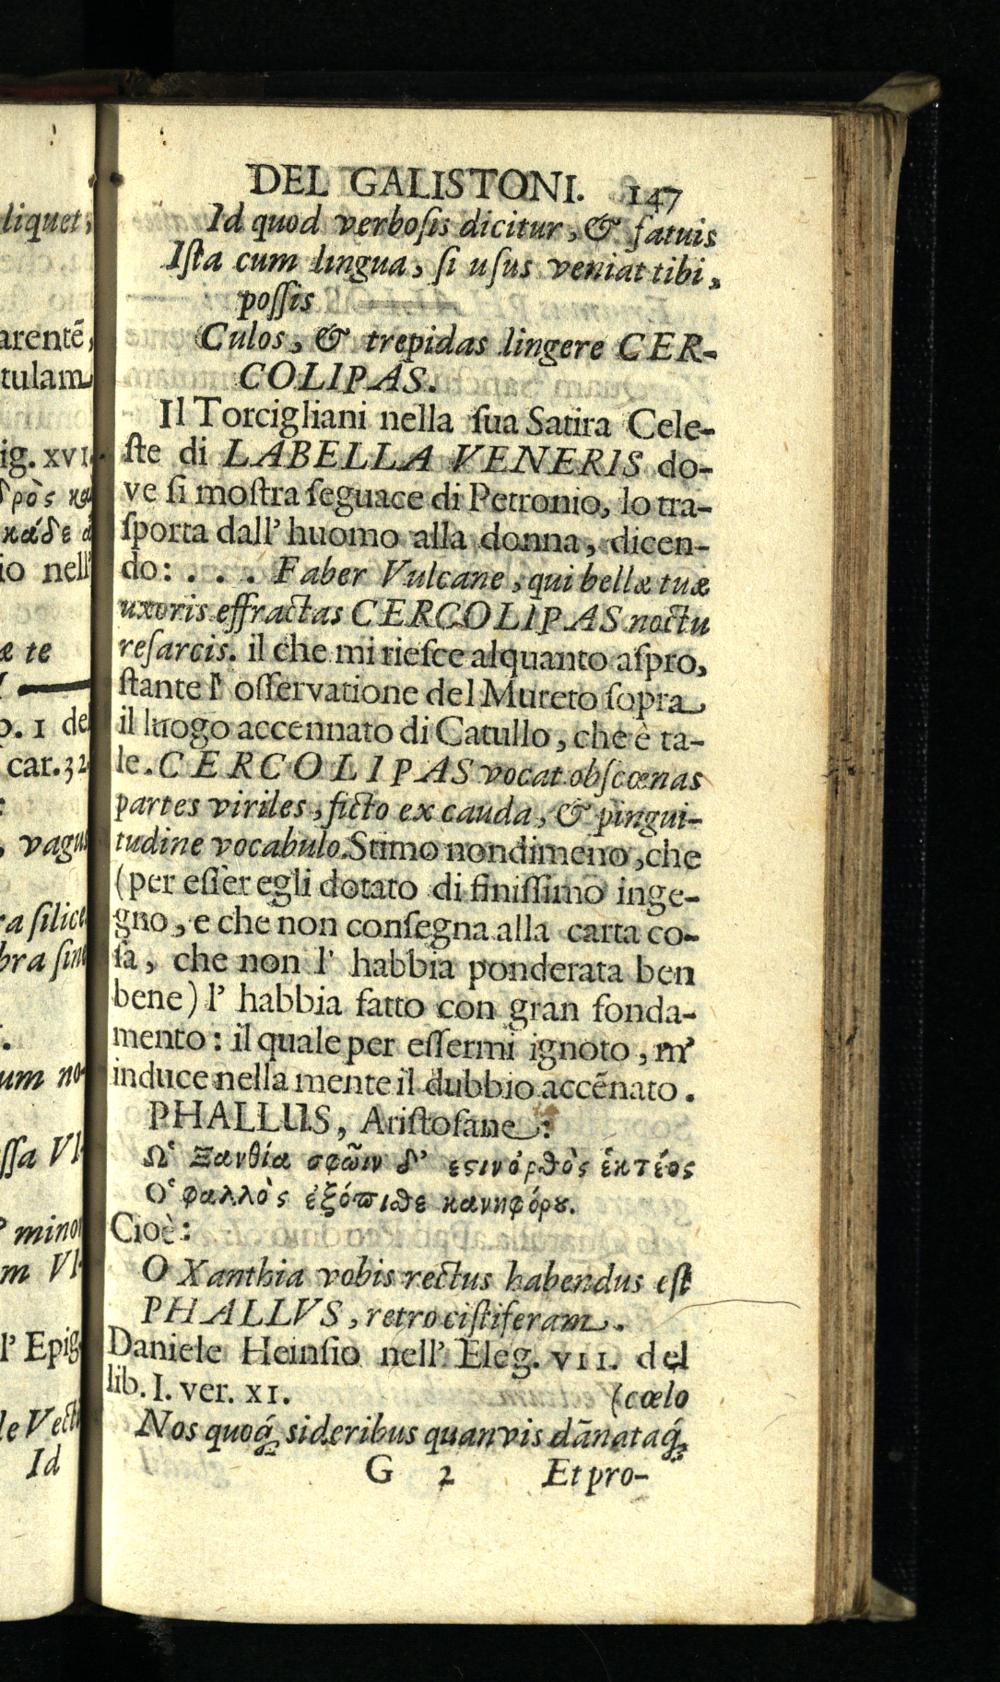 DEL GALISTONI. 147
Id quod verbosis dicitur, & fatuis
Ista cum lingua, si usus veniat tibi,
possis
Culos, & trepidas lingere CER-
COLIPAS.
Il Torcigliani nella sua Satira Cele-
ste di LABELLA VENERIS do-
ve si mostra seguace di Petronio, lo tra-
sporta dall' huomo alla donna, dicen-
do: . . . Faber Vulcane, qui bellæ tuæ
uxoris effractas CERCOLIPAS noctu
resarcis. il che mi riesce alquanto aspro,
stante l' osservatione del Mureto sopra
il luogo accennato di Catullo, che è ta-
le. CERCOLIPAS vocat obscœnas
partes viriles, ficto ex cauda, & pingui-
tudine vocabulo. Stimo nondimeno, che
(per esser egli dotato di finissimo inge-
gno, e che non consegna alla carta co-
sa, che non l' habbia ponderata ben
bene) l' habbia fatto con gran fonda-
mento: il quale per essermi ignoto, m'
induce nella mente il dubbio accẽnato.
PHALLUS, Aristofane:
Ω῾ Ξανθία σφῶιν δ' ἐςὶν ὀρθὸς ἑκτέος
Ο῾ φαλλὸς ἐξόπιθε κανηφόρου.
Cioè:
O Xanthia vobis rectus habendus est
PHALLVS, retro cistiferam.
Daniele Heinsio nell' Eleg. VII. del
lib. I. ver. XI. (cœlo
Nos quoq; sideribus quanvis dãnataq;
G 2 Et pro-
liquet,
arentẽ,
tulam
ig. XVI.
io nell'
æ te
p. 1 del
car. 32
, vagus
ra silice
bra sine
um no-
ssa Vl-
mino
m Vl-
l' Epig
Id